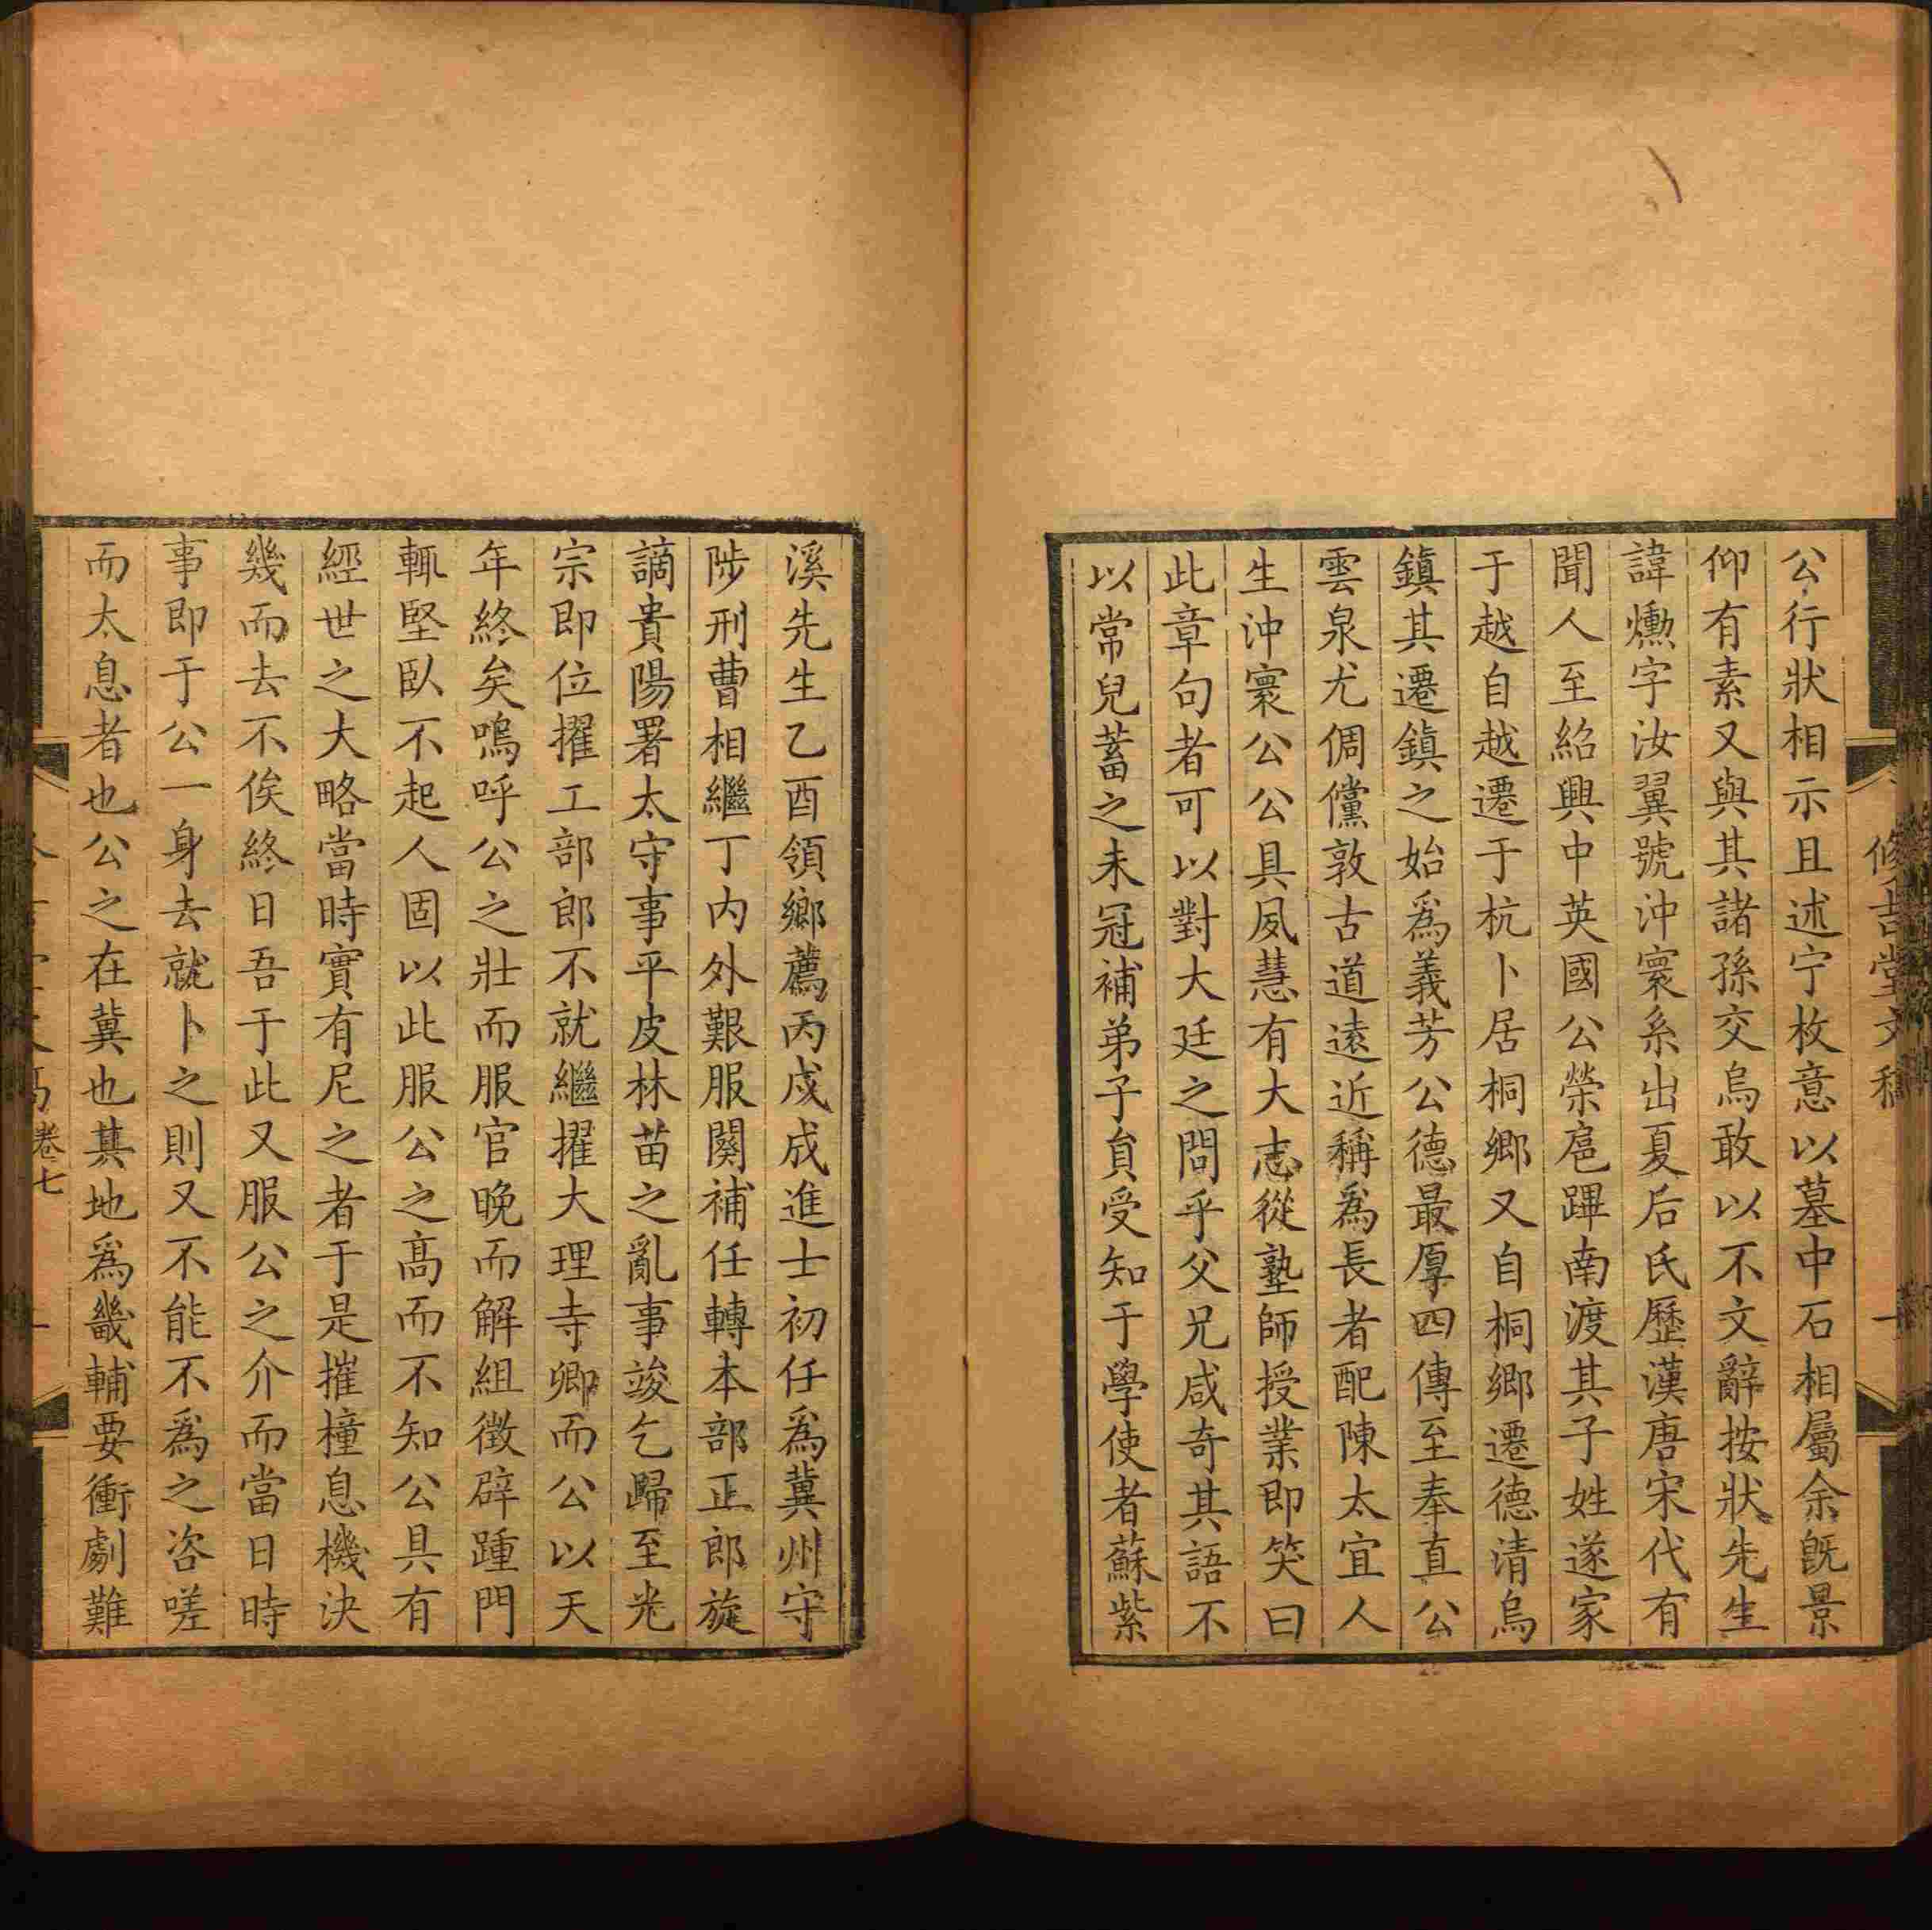 公行狀相示且述宁枚意以墓中石相屬余旣景
仰有素又與其諸孫交烏敢以不文辭按狀先生
諱爋字汝翼號沖寰系出夏后氏歷漢唐宋代有
聞人至紹興中英國公榮扈蹕南渡其子姓遂家
于越自越遷于杭卜居桐鄉又自桐鄉遷德清烏
鎮其遷鎮之始爲義芳公德最厚四傳至奉直公
雲泉尤倜儻敦古道遠近稱爲長者配陳太宜人
生沖寰公公具夙慧有大志從塾師授業即笑曰
此章句者可以對大廷之問乎父兄咸奇其語不
以常兒蓄之未冠補弟子貟受知于學使者蘇紫
溪先生乙酉領鄉薦丙戌成進士初任爲冀州守
陟刑曹相繼丁内外艱服闋補任轉本部正郎旋
謫貴陽署太守事平皮林苗之亂事竣乞歸至光
宗即位擢工部郎不就繼擢大理寺卿而公以天
年終矣嗚呼公之壯而服官晚而解組徵辟踵門
輒堅臥不起人固以此服公之高而不知公具有
經世之大略當時實有尼之者于是摧橦息機決
幾而去不俟終日吾于此又服公之介而當日時
事即于公一身去就卜之則又不能不爲之咨嗟
而太息者也公之在冀也其地爲畿輔要衝劇難
修吉堂文稿
一
卷七